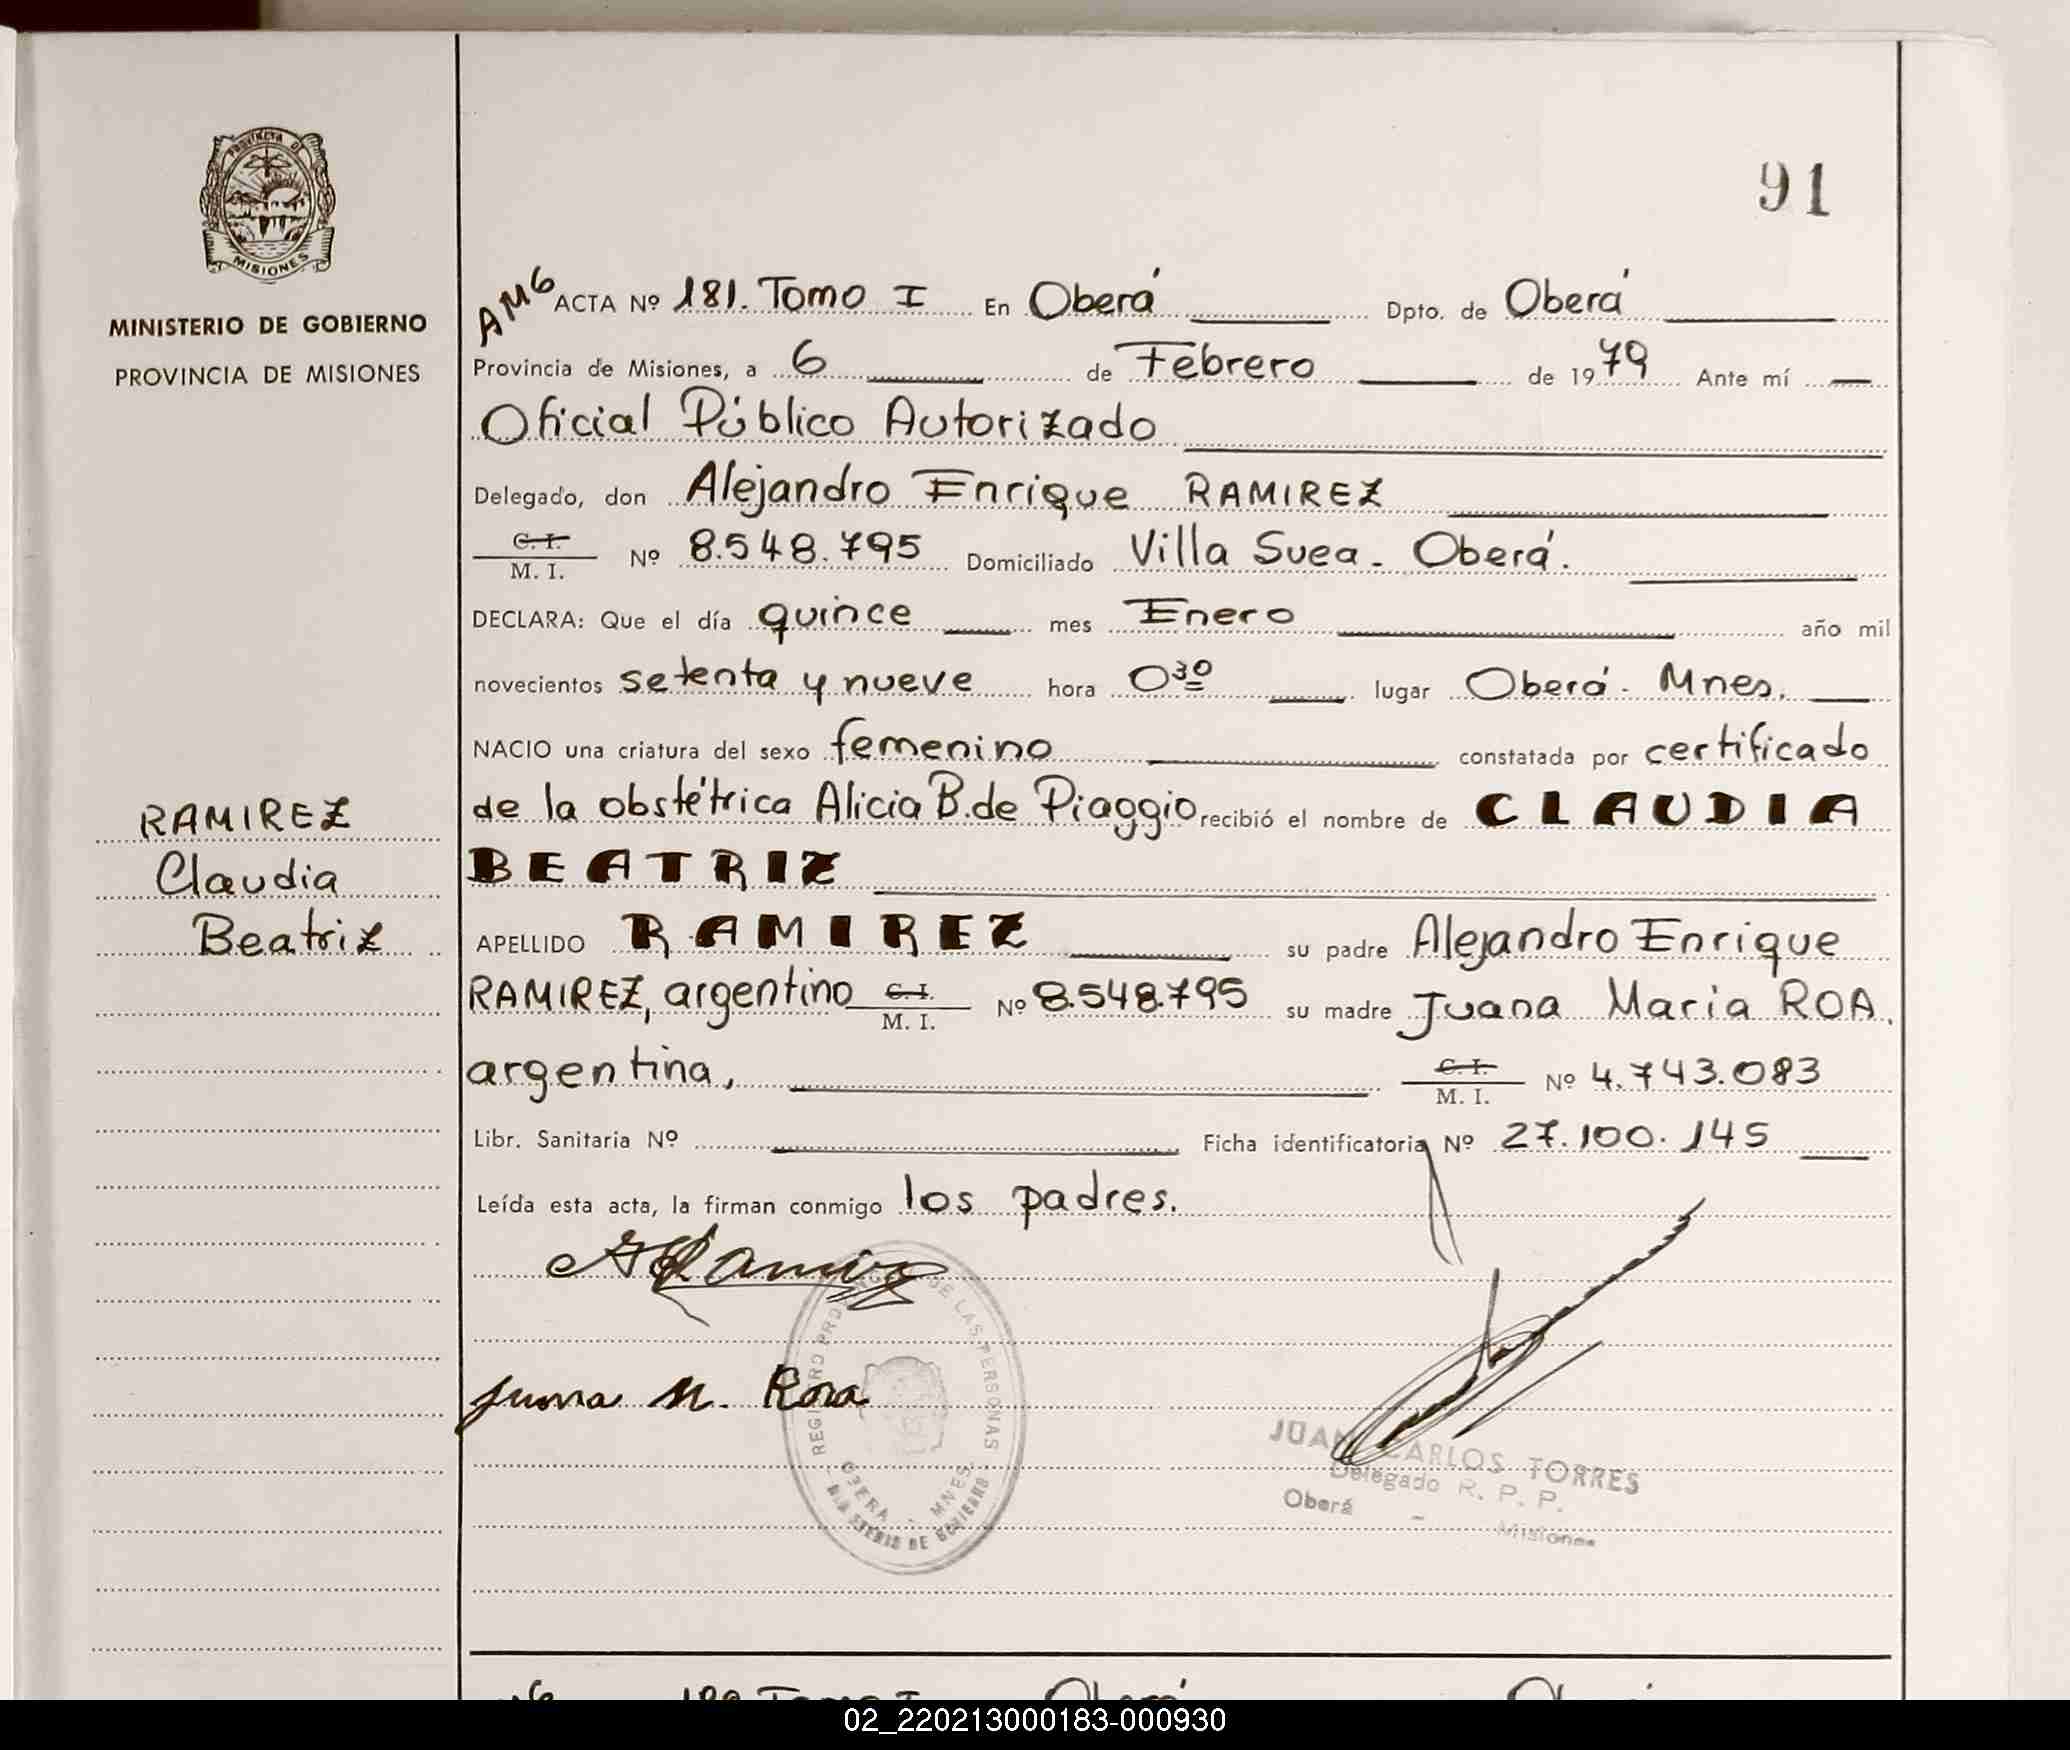 PROVINCIA DE
MISIONES
MINISTERIO DE GOBIERNO
PROVINCIA DE MISIONES
RAMIREZ
Claudia
Beatriz
91
AMG ACTA Nº 181. Tomo I En Oberá Dpto. de Oberá
Provincia de Misiones, a 6 de Febrero de 1979 Ante mí
Oficial Público Autorizado
Delegado, don Alejandro Enrique RAMIREZ
C. I.
M. I. Nº 8.548.795 Domiciliado Villa Svea - Oberá.
DECLARA: Que el día quince mes Enero año mil
novecientos setenta y nueve hora 0³⁰ lugar Oberá - Mnes.
NACIO una criatura del sexo femenino constatada por certificado
de la obstétrica Alicia B. de Piaggio recibió el nombre de CLAUDIA
BEATRIZ
APELLIDO RAMIREZ su padre Alejandro Enrique
RAMIREZ, argentino C. I. M. I. Nº 8.548.795 su madre Juana Maria ROA,
argentina, C. I. M. I. Nº 4.743.083
Libr. Sanitaria Nº Ficha identificatoria Nº 27.100.145
Leída esta acta, la firman conmigo los padres.
Juana M. Roa
REGISTRO PROVINCIAL DE LAS PERSONAS
OBERA - MNES.
MINISTERIO DE GOBIERNO
JUAN CARLOS TORRES
Delegado R. P. P.
Oberá - Misiones
02_220213000183-000930